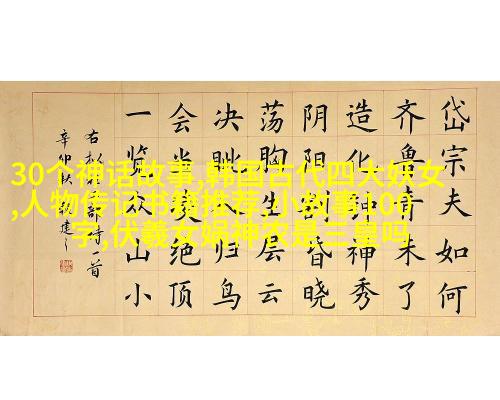 岱宗夫如何
齐鲁青未了
造化钟神秀
阴阳割昏晓
荡胸生层云
决眦入归鸟
会当凌绝顶
一览众山小
右部诗一首
辛卯秋建
30个神话故事,韩国古代四大妖女
,人物传记书籍推荐,小故事100
字,伏羲女娲神农是三皇吗